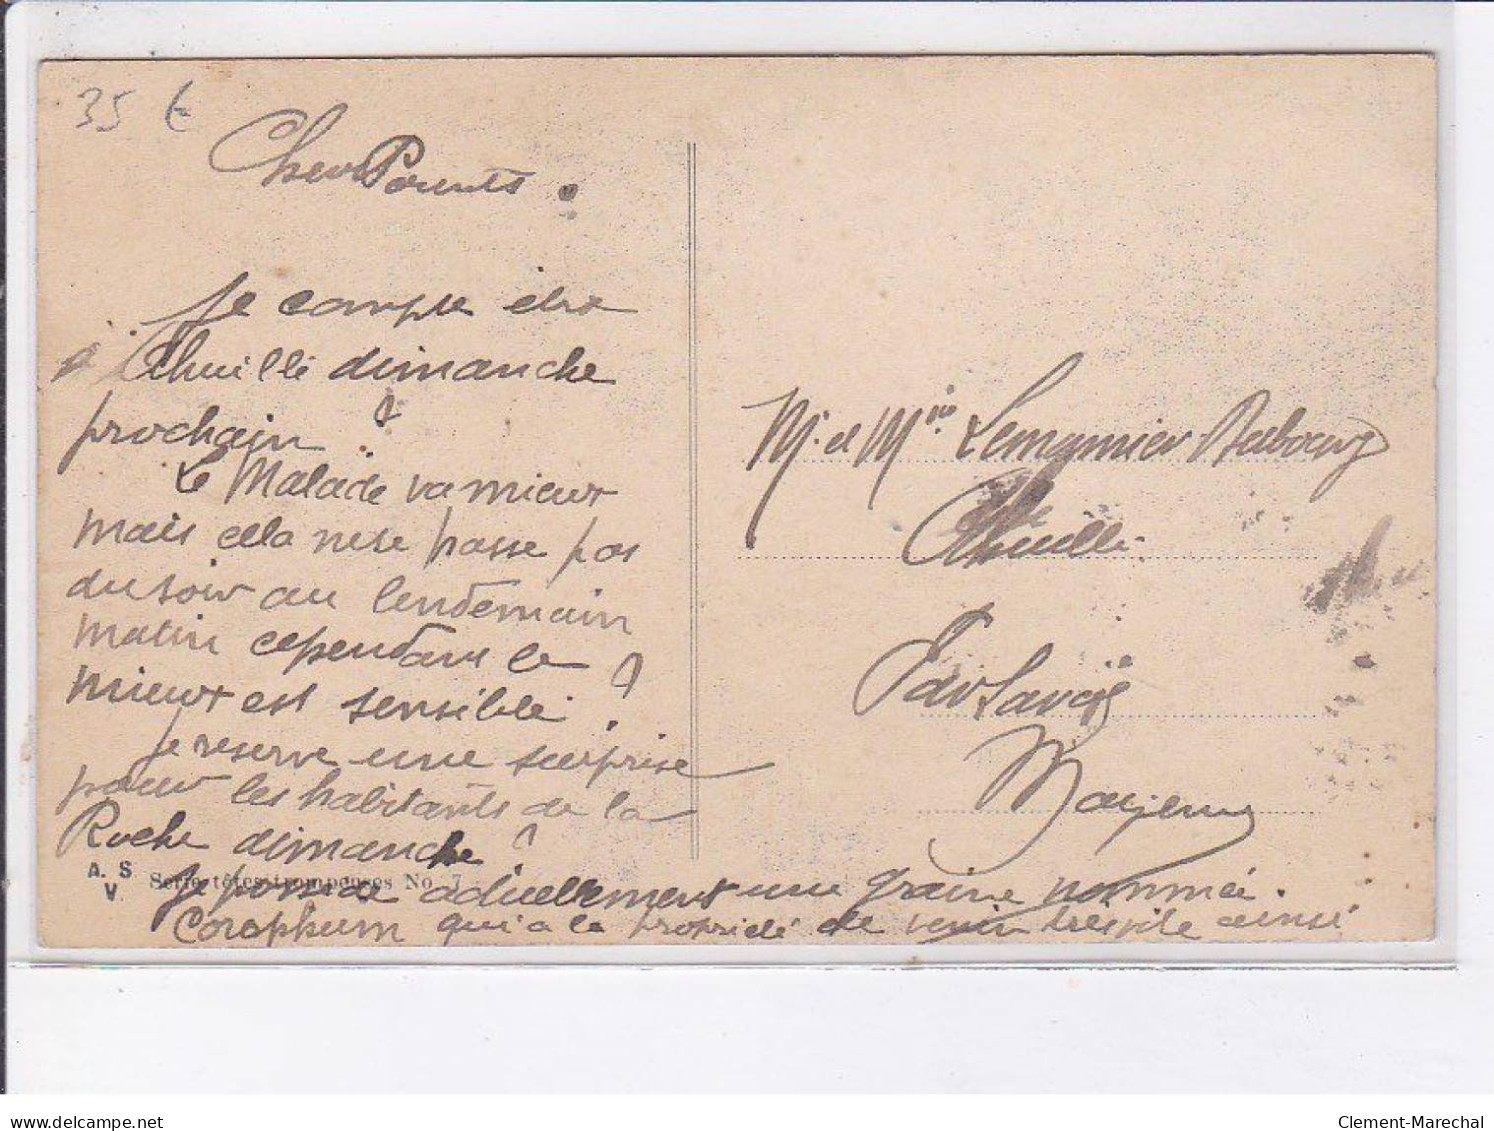 35 €
Chers Parents.
Je compte être
à Thuillé dimanche
prochain
Le Malade va mieux
mais cela ne se passe pas
du soir au lendemain
matin cependant le
mieux est sensible
Je reserve une surprise
pour les habitants de la
Roche dimanche
A. S
V
Serie têtes trompeuses No. 7
Je possède actuellement une graine nommée.
Corophum qui a la propriété de venir très vite ainsi
Mr. et Mme. Lemonnier
Thuillé
Par Laval
Mayenne
delcampe.net
Clement-Marechal